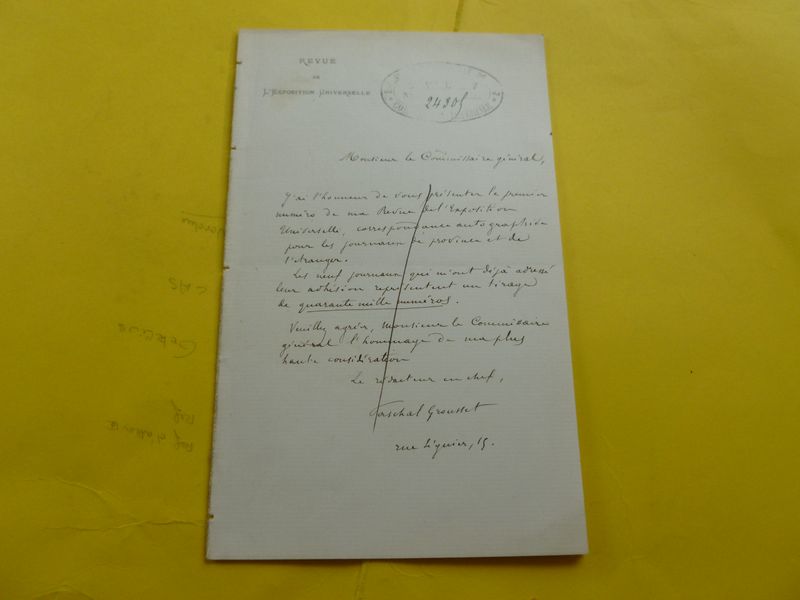 REVUE
DE
L'EXPOSITION UNIVERSELLE
24305
Monsieur le Commissaire général,
J'ai l'honneur de vous présenter le premier
numéro de ma Revue de l'Exposition
Universelle, correspondance autographiée
pour les journaux de province et de
l'étranger.
Les neuf journaux qui m'ont déjà adressé
leur adhésion représentent un tirage
de quarante mille numéros.
Veuillez agréer, Monsieur le Commissaire
général l'hommage de ma plus
haute considération
Le rédacteur en chef,
Paschal Grousset
rue